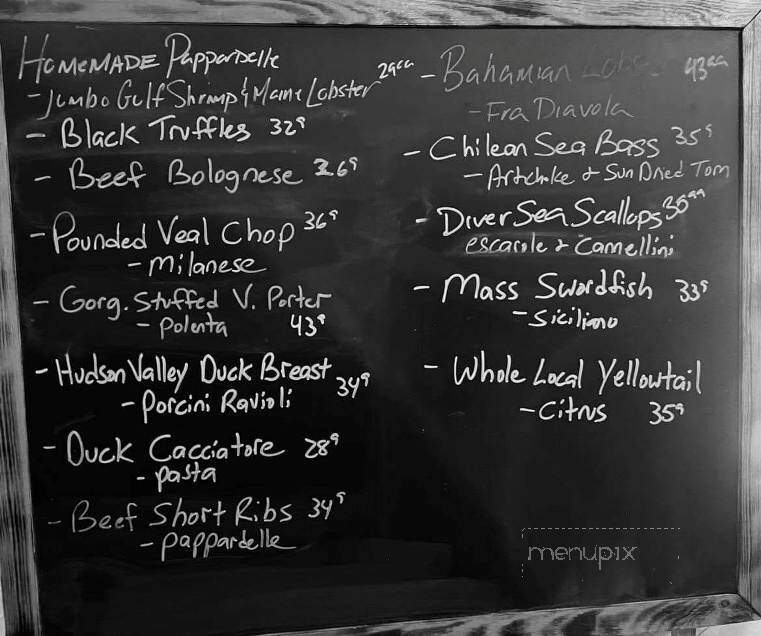 HOMEMADE Pappardelle
- Jumbo Gulf Shrimp & Maine Lobster 29⁹⁹
- Black Truffles 32⁹
- Beef Bolognese 26⁹
- Pounded Veal Chop 36⁹
- Milanese
- Gorg. Stuffed V. Porter
- Polenta 43⁹
- Hudson Valley Duck Breast 34⁹
- Porcini Ravioli
- Duck Cacciatore 28⁹
- pasta
- Beef Short Ribs 34⁹
- pappardelle
- Bahamian 43⁹⁹
- Fra Diavola
- Chilean Sea Bass 35⁹
- Artichoke & Sun Dried Tom
- Diver Sea Scallops 35⁹⁹
escarole & Camellini
- Mass Swordfish 33⁹
- Siciliano
- Whole Local Yellowtail
- Citrus 35⁹
menupix